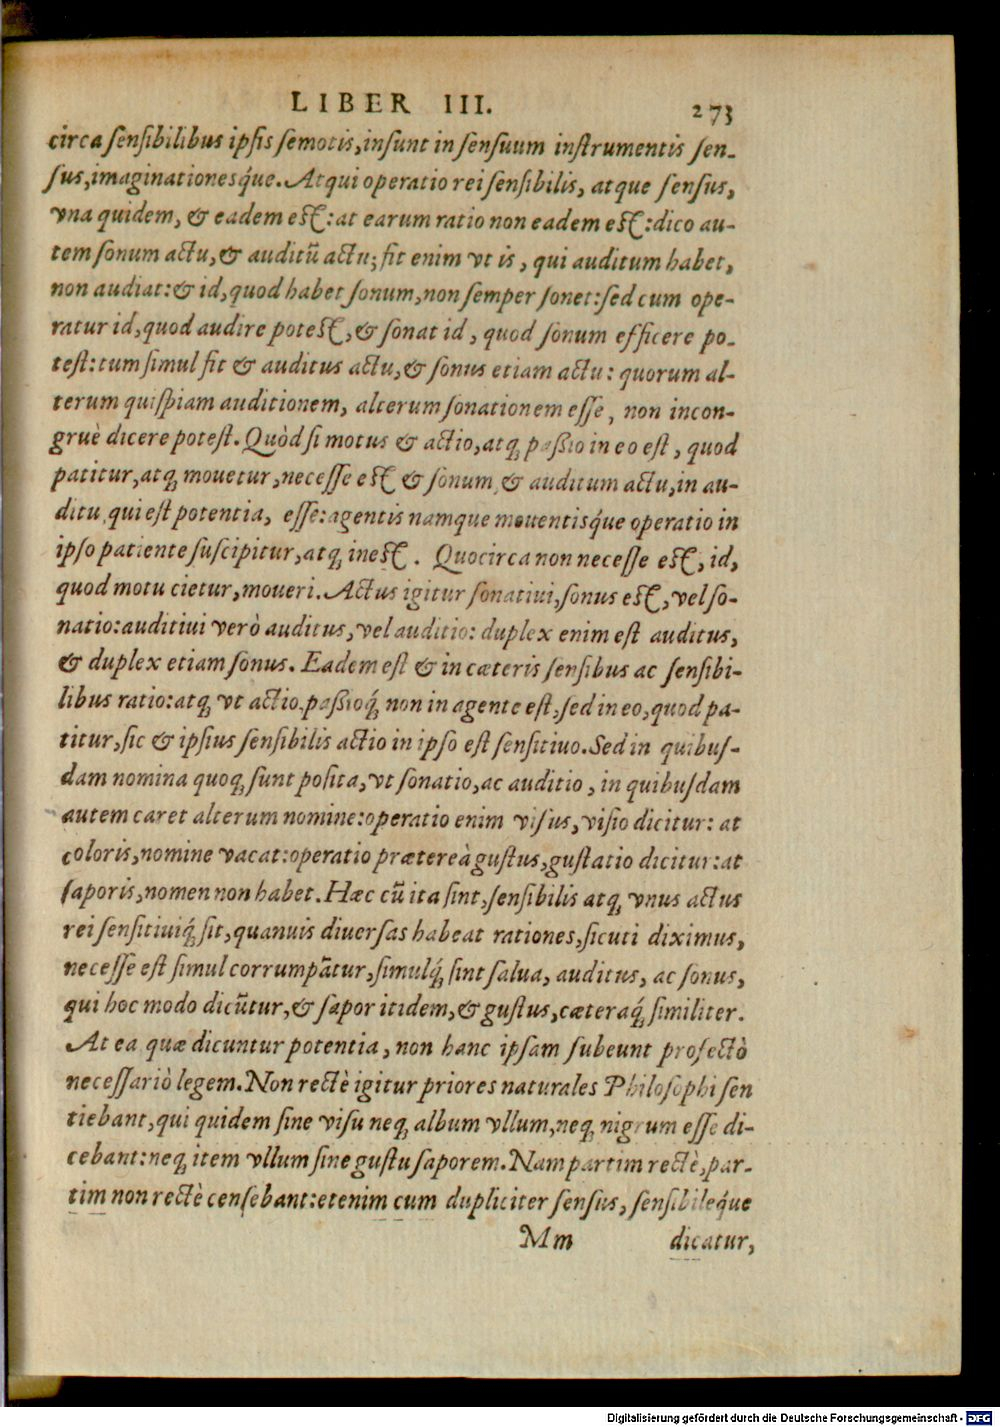 LIBER III. 273
circa sensibilibus ipsis semotis, insunt in sensuum instrumentis sen-
sus, imaginationesq́ue. Atqui operatio rei sensibilis, atque sensus,
vna quidem, & eadem est: at earum ratio non eadem est: dico au-
tem sonum actu, & auditū actu; fit enim vt is, qui auditum habet,
non audiat: & id, quod habet sonum, non semper sonet: sed cum ope-
ratur id, quod audire potest, & sonat id, quod sonum efficere po-
test: tum simul fit & auditus actu, & sonus etiam actu: quorum al-
terum quispiam auditionem, alterum sonationem esse, non incon-
gruè dicere potest. Quòd si motus & actio, atq; passio in eo est, quod
patitur, atq; mouetur, necesse est & sonum, & auditum actu, in au-
ditu, qui est potentia, esse: agentis namque mouentisq́ue operatio in
ipso patiente suscipitur, atq; inest. Quocirca non necesse est, id,
quod motu cietur, moueri. Actus igitur sonatiui, sonus est, vel so-
natio: auditiui verò auditus, vel auditio: duplex enim est auditus,
& duplex etiam sonus. Eadem est & in cæteris sensibus ac sensibi-
libus ratio: atq; vt actio, passioq́; non in agente est, sed in eo, quod pa-
titur, sic & ipsius sensibilis actio in ipso est sensitiuo. Sed in quibus-
dam nomina quoq; sunt posita, vt sonatio, ac auditio, in quibusdam
autem caret alterum nomine: operatio enim visus, visio dicitur: at
coloris, nomine vacat: operatio prætereà gustus, gustatio dicitur: at
saporis, nomen non habet. Hæc cū ita sint, sensibilis atq; vnus actus
rei sensitiuiq́; sit, quanuis diuersas habeat rationes, sicuti diximus,
necesse est simul corrumpātur, simulq́; sint salua, auditus, ac sonus,
qui hoc modo dicūtur, & sapor itidem, & gustus, cæteraq́; similiter.
At ea quæ dicuntur potentia, non hanc ipsam subeunt profectò
necessariò legem. Non rectè igitur priores naturales Philosophi sen
tiebant, qui quidem sine visu neq; album vllum, neq; nigrum esse di-
cebant: neq; item vllum sine gustu saporem. Nam partim rectè, par-
tim non rectè censebant: etenim cum dupliciter sensus, sensibileq́ue
Mm dicatur,
Digitalisierung gefördert durch die Deutsche Forschungsgemeinschaft - DFG